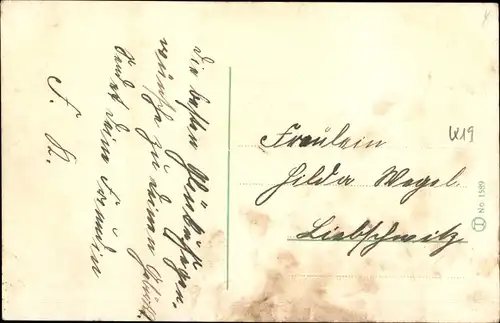 Die besten Glück u. Segen.
wünsche zu deinem Geburtst.
sendet deine Freundin
F. K.
Fräulein
Hilda Wagel
Liebschwitz
W19
No 1589